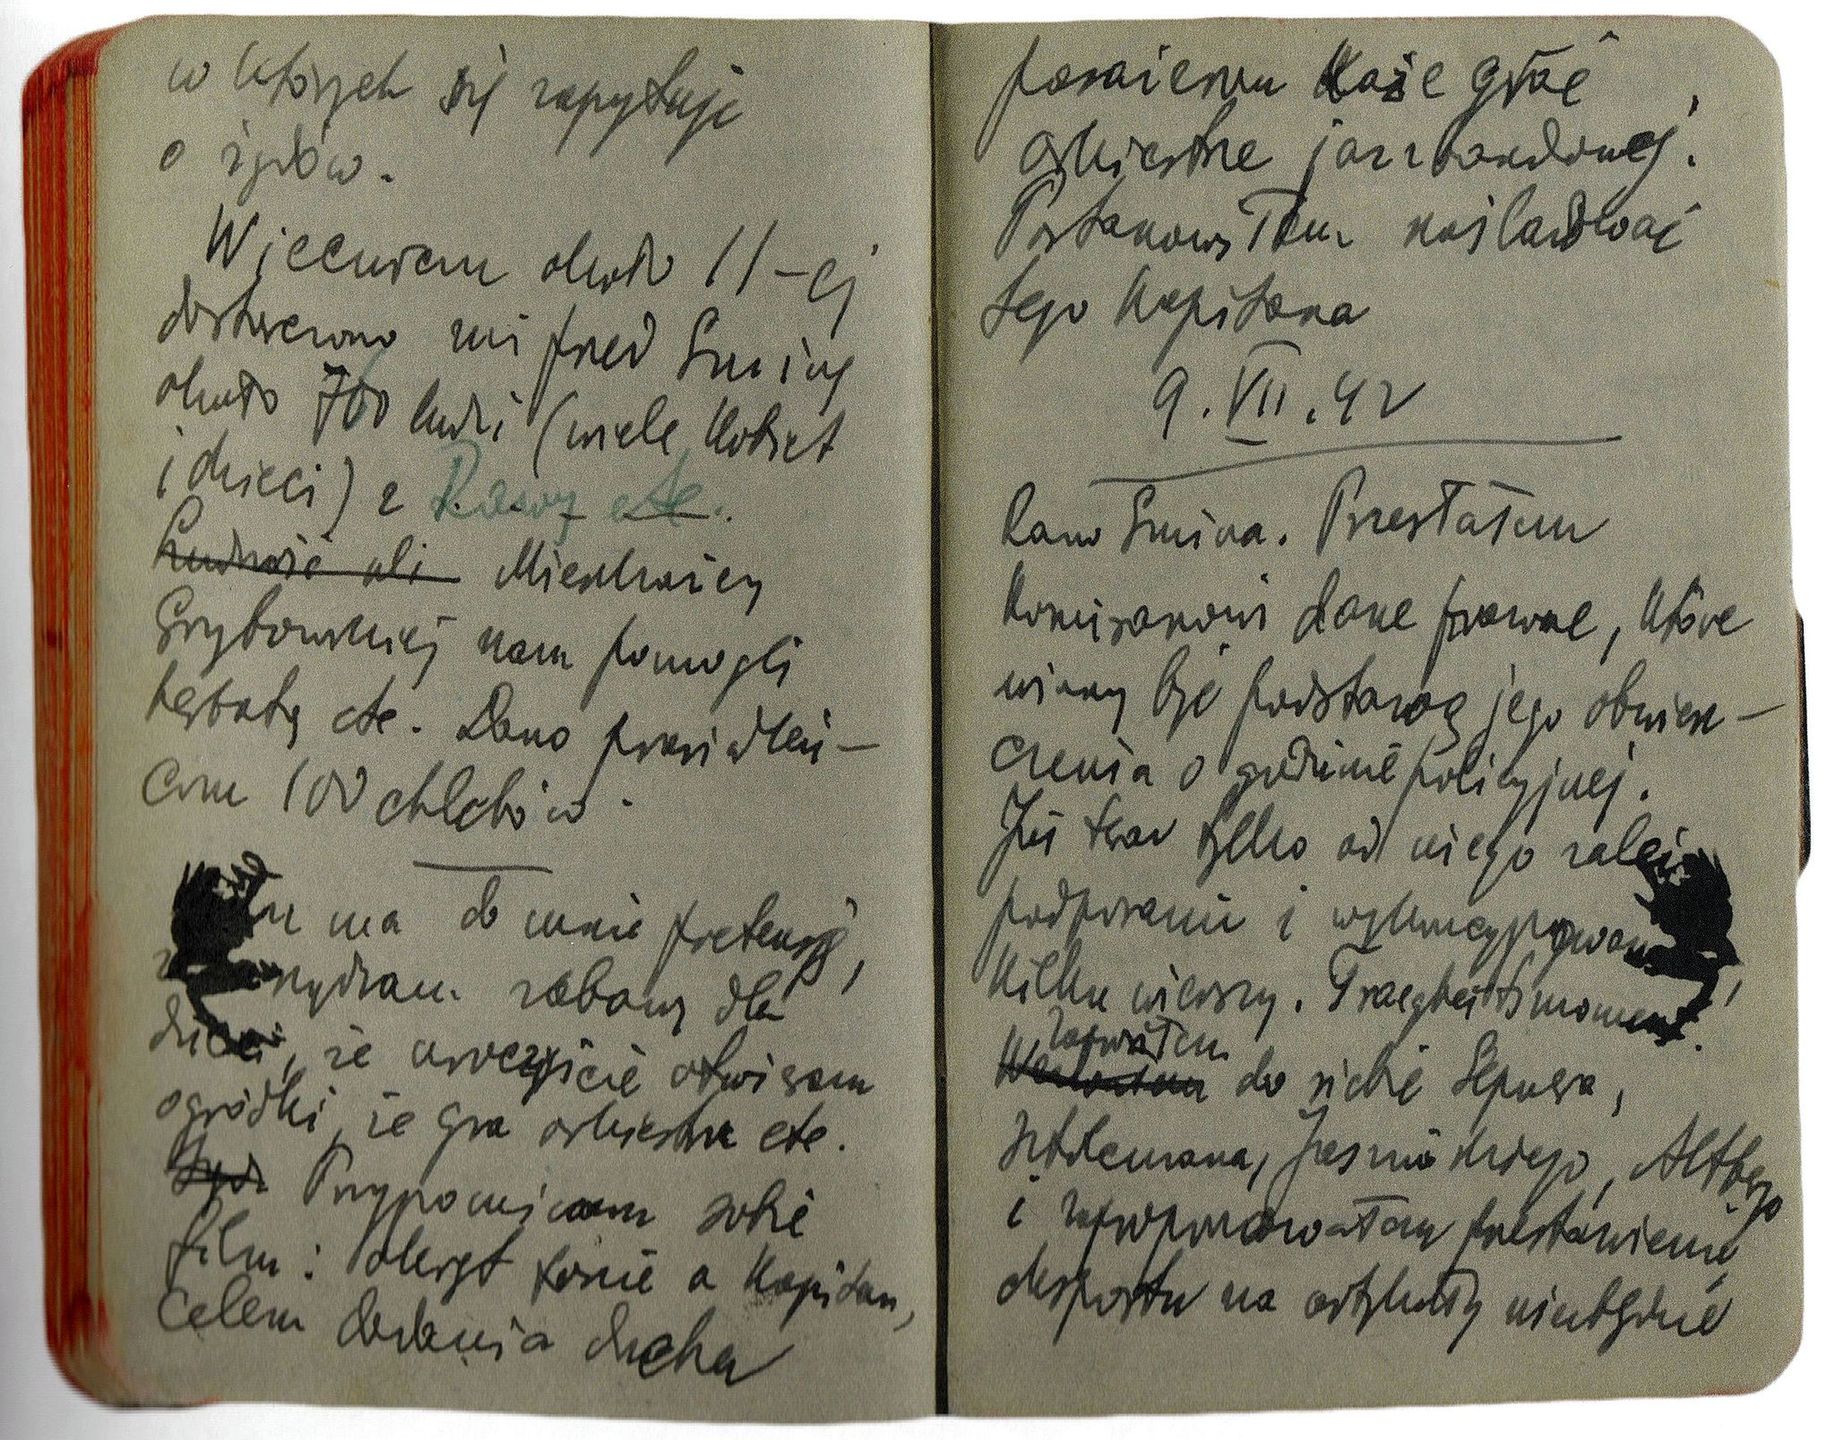 w których się zapytuje
o żydów.
Wieczorem około 11-ej
dostarczono mi pred Gminę
około 700 ludzi (wiele kobiet
i dzieci) z Rawy etc.
Ludność uli Mieszkańcy
Grzybowskiej nam pomogli
herbatą etc. Dano przesiedleń-
com 100 chlebów.
ma do mnie pretensję,
zabawy dla
dzieci, że uroczyście otwieram
ogródki, że gra orkiestra etc.
Przypominam sobie
film: okręt tonie a kapitan,
celem dodania ducha
pasażerom każe grać
orkiestrze jazzbandowej.
Postanowiłem naśladować
tego kapitana
9.VII.42
Rano Gmina. Przesłałem
Komisarzowi dane prawne, które
winny być podstawą jego obwiesz-
czenia o godzinie policyjnej.
Już teraz tylko od niego zależy
podpisanie i
kilku wierszy. Tragheitsmoment.
Zaprosiłem
do siebie Sepnera,
Sztolcmana, Jasińskiego, Altberga
i zaproponowałem przestawienie
eksportu na artykuły niezbędne